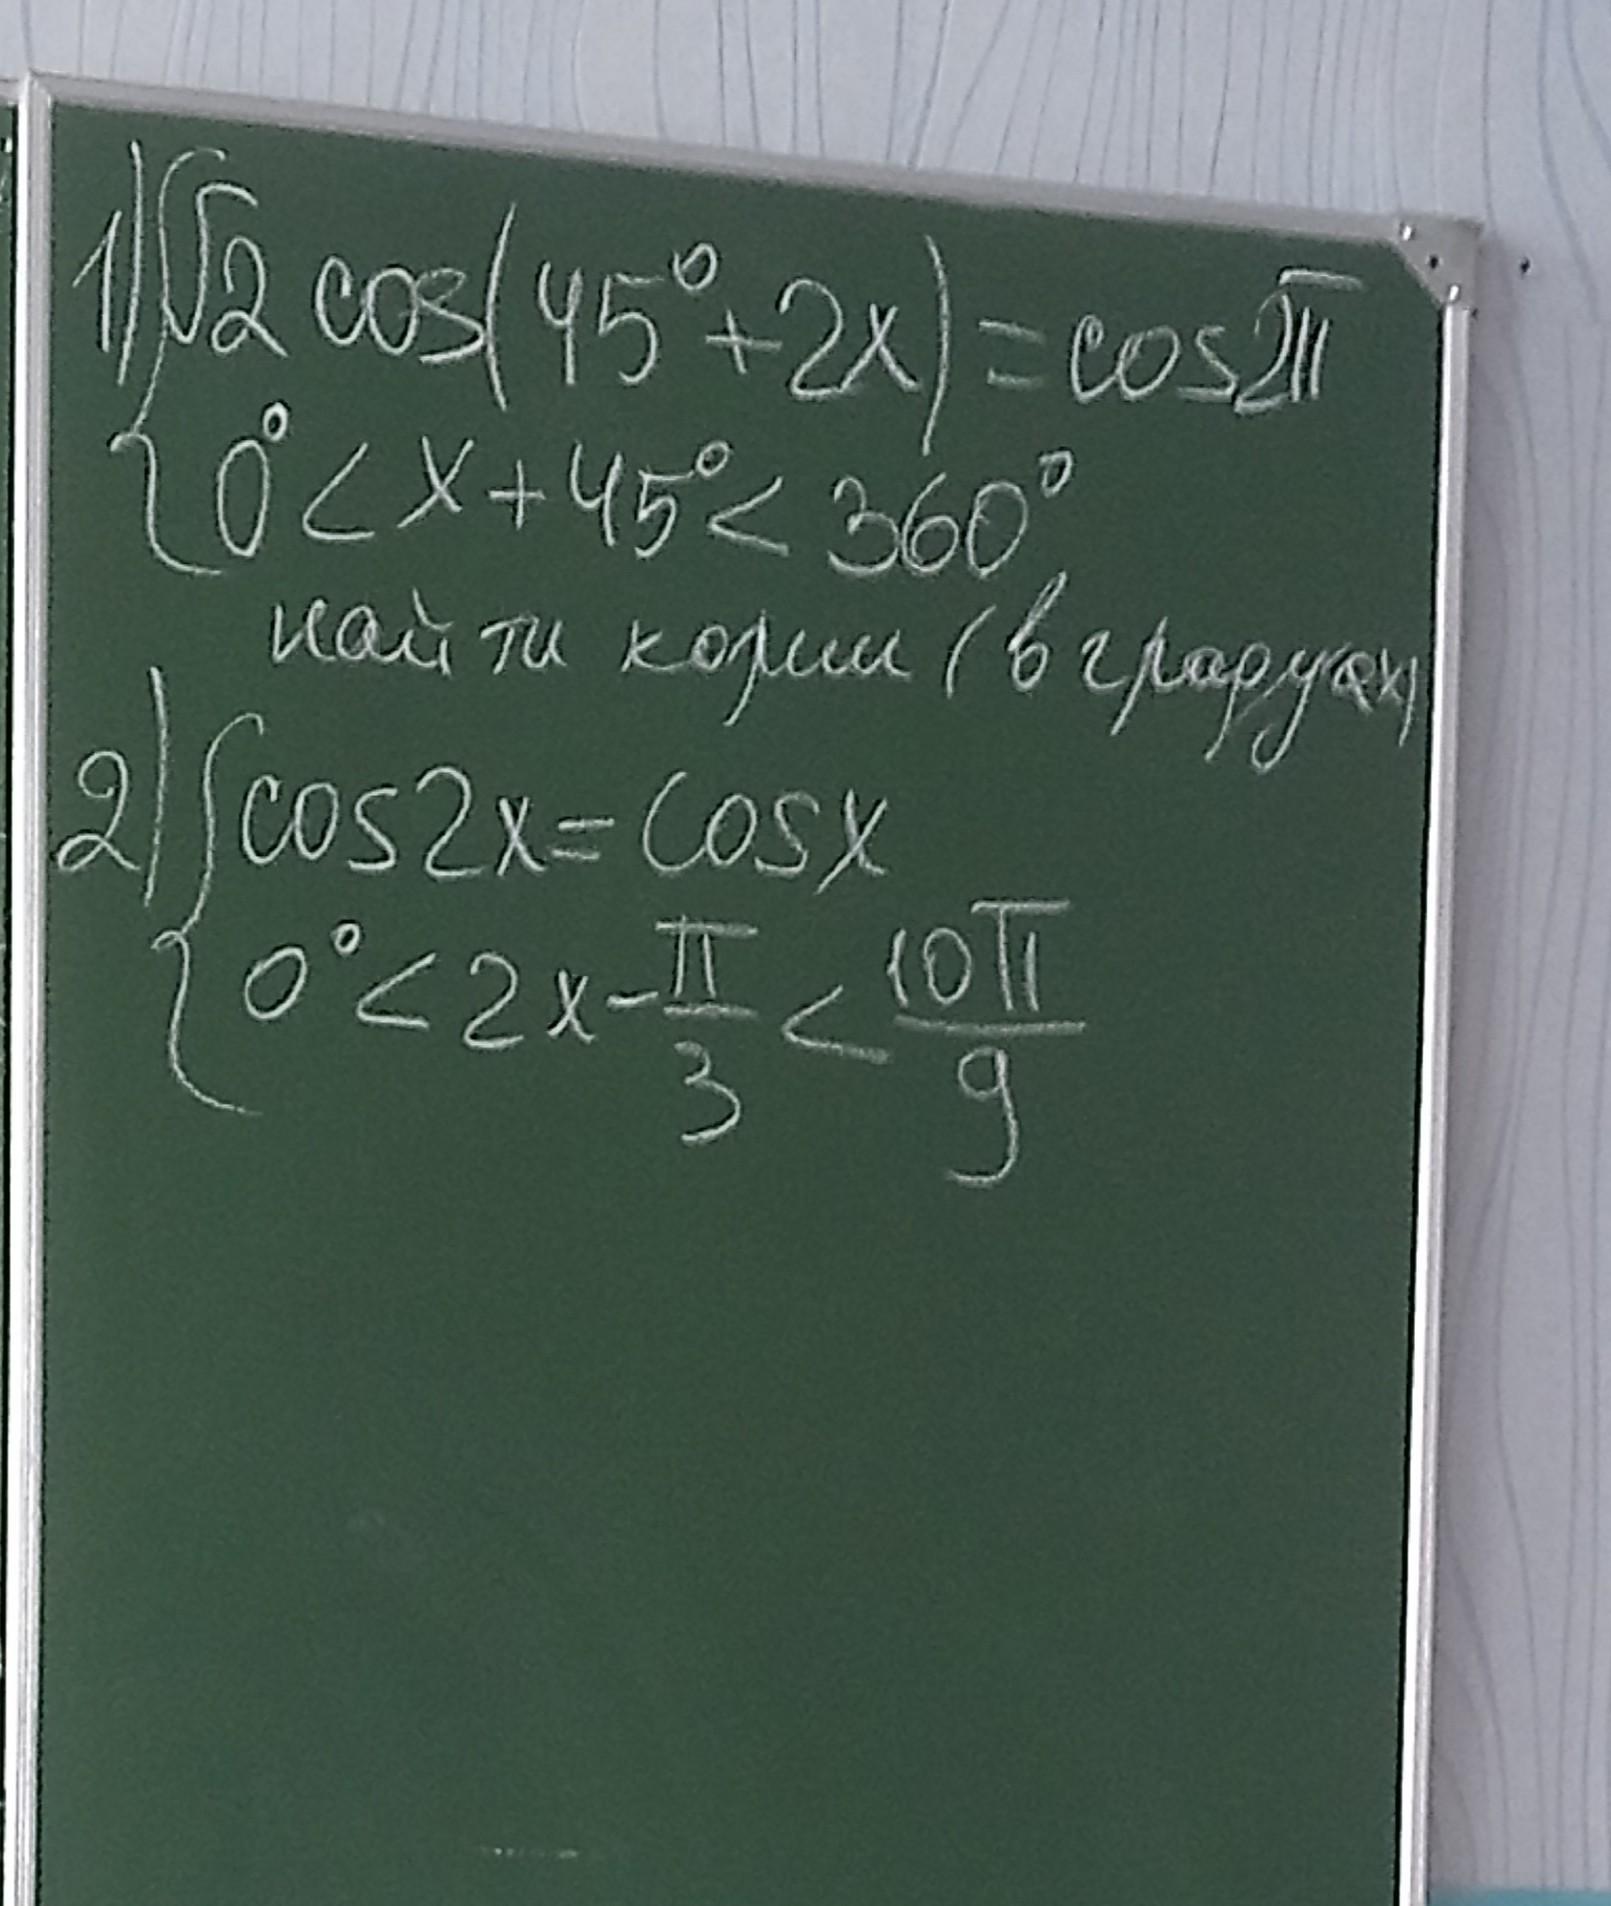 1) √2 cos(45° + 2x) = cos2π
0° < x + 45° < 360°
найти корни (в градусах)
2) cos2x = cosx
0° < 2x - π/3 < 10π/9